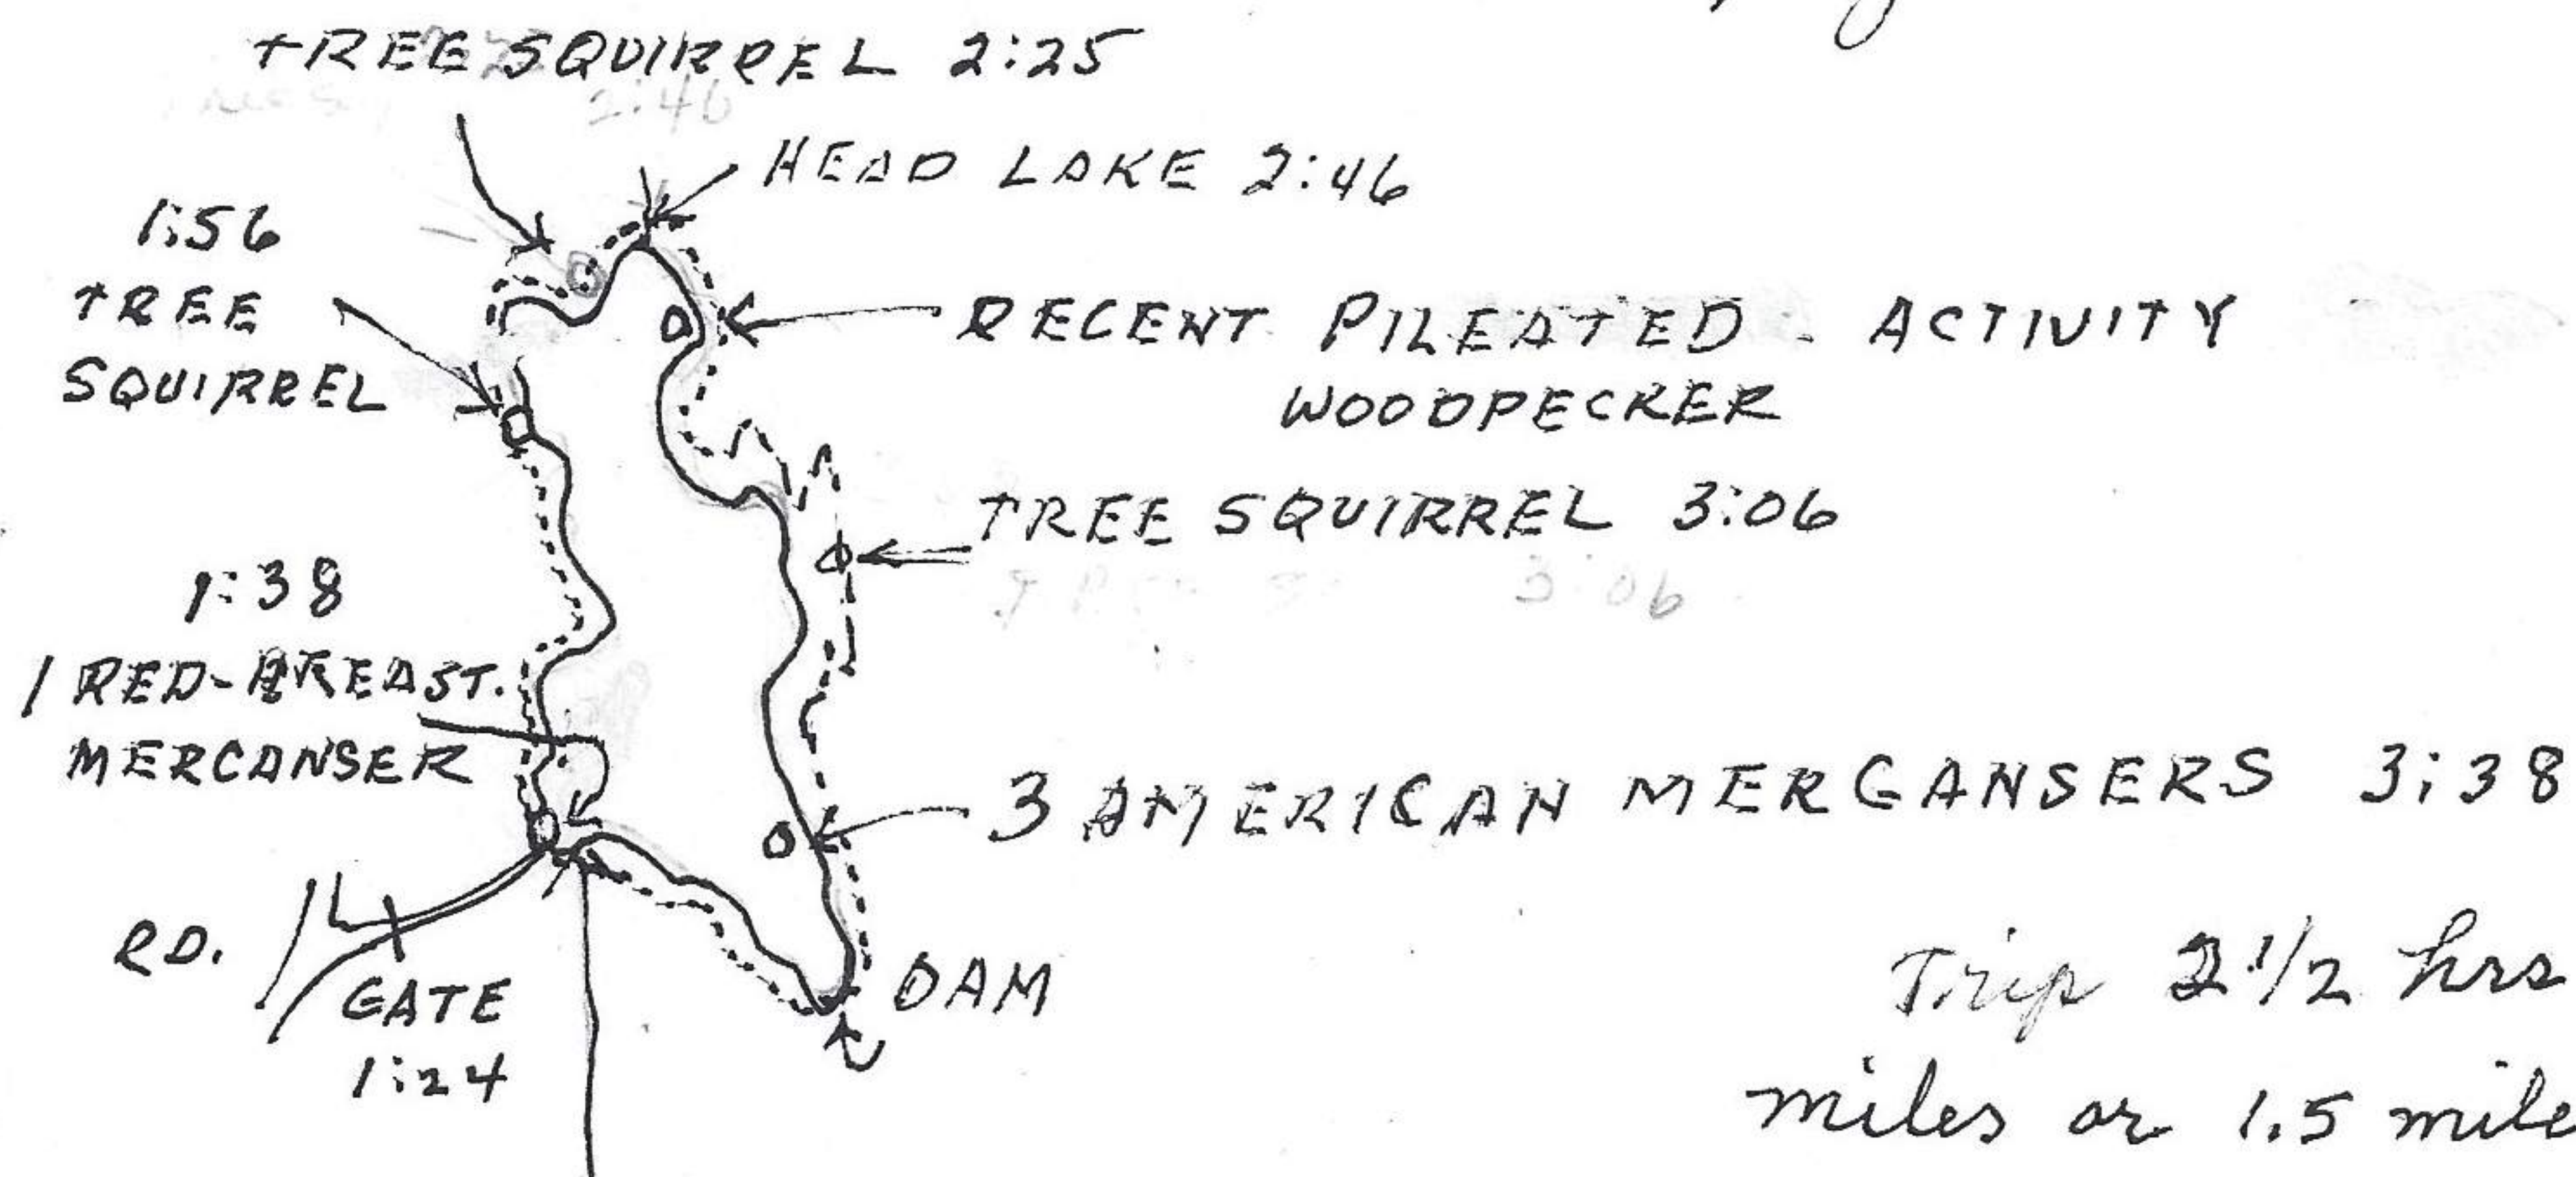 TREE SQUIRREL 2:25
2:46
HEAD LAKE 2:46
1:56
TREE
SQUIRREL
RECENT PILEATED ACTIVITY
WOODPECKER
TREE SQUIRREL 3:06
3:06
1:38
1 RED-BREAST.
MERCANSER
3 AMERICAN MERGANSERS 3:38
RD.
GATE
1:24
DAM
Trip 2 1/2 hrs
miles or 1.5 mile